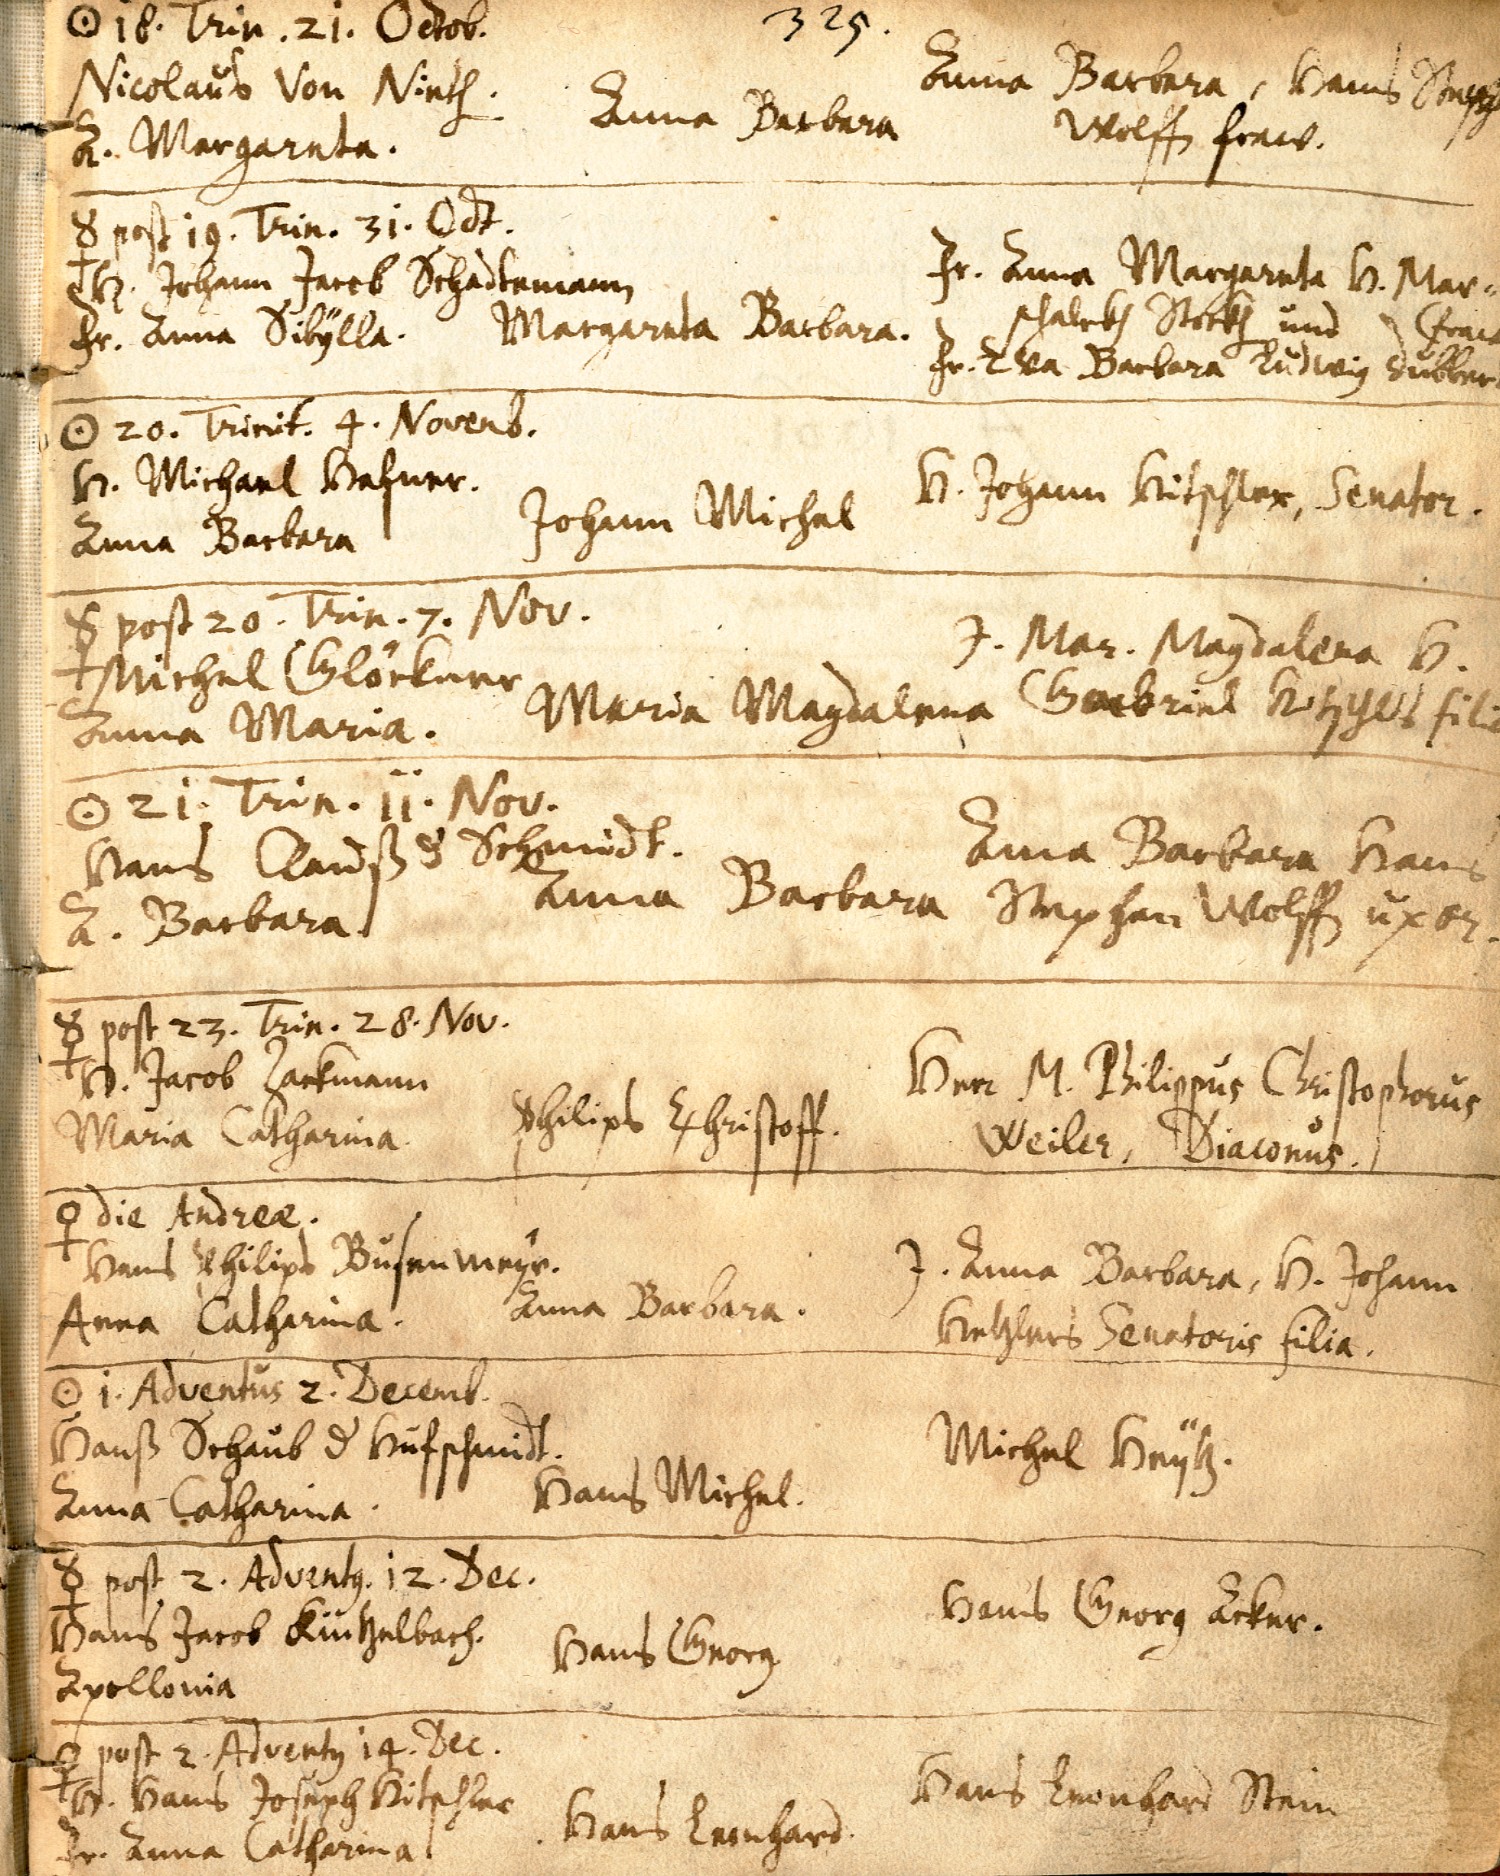 325.
☉ 18. Trin. 21. Octob.
Nicolaus Von Nieth.
A. Margareta.
Anna Barbara
Anna Barbara, Hans Steph
Wolff fraw.
☿ post 19. Trin. 31. Oct.
H. Johann Jacob Schadtemann
Fr. Anna Sibÿlla.
Margareta Barbara.
Fr. Anna Margareta H. Mar-
schalcks Stecks und
Fr. Eva Barbara Ludwig
☉ 20. Trinit. 4. Novemb.
H. Michael Hafner.
Anna Barbara
Johann Michel
H. Johann Hitschler, Senator.
☿ post 20. Trin. 7. Nov.
Michel Glöckner
Anna Maria.
Maria Magdalena
J. Mar. Magdalena H.
Gabriel filia
☉ 21. Trin. 11. Nov.
Hans Clauß d Schmidt.
A. Barbara.
Anna Barbara
Anna Barbara Hans
Stephan Wolff uxor.
☿ post 23. Trin. 28. Nov.
H. Jacob Zackmann
Maria Catharina.
Philips Christoff.
Herr M. Philippus Christophorus
Weiler, Diaconus.
♀ die Andreæ.
Hans Philips Busenmeÿr.
Anna Catharina.
Anna Barbara.
J. Anna Barbara, H. Johann
Senatoris filia.
☉ 1. Adventus 2. Decemb.
Hanß Schaub d Hufschmidt.
Anna Catharina.
Hans Michel.
Michel Heÿtz.
☿ post 2. Advent9. 12. Dec.
Hans Jacob Küntzelbach.
Apollonia
Hans Georg
Hans Georg Acker.
♀ post 2. Advent9 14. Dec.
H. Hans Joseph Hitschler
Fr. Anna Catharina
Hans Leonhard.
Hans Leonhard Stein